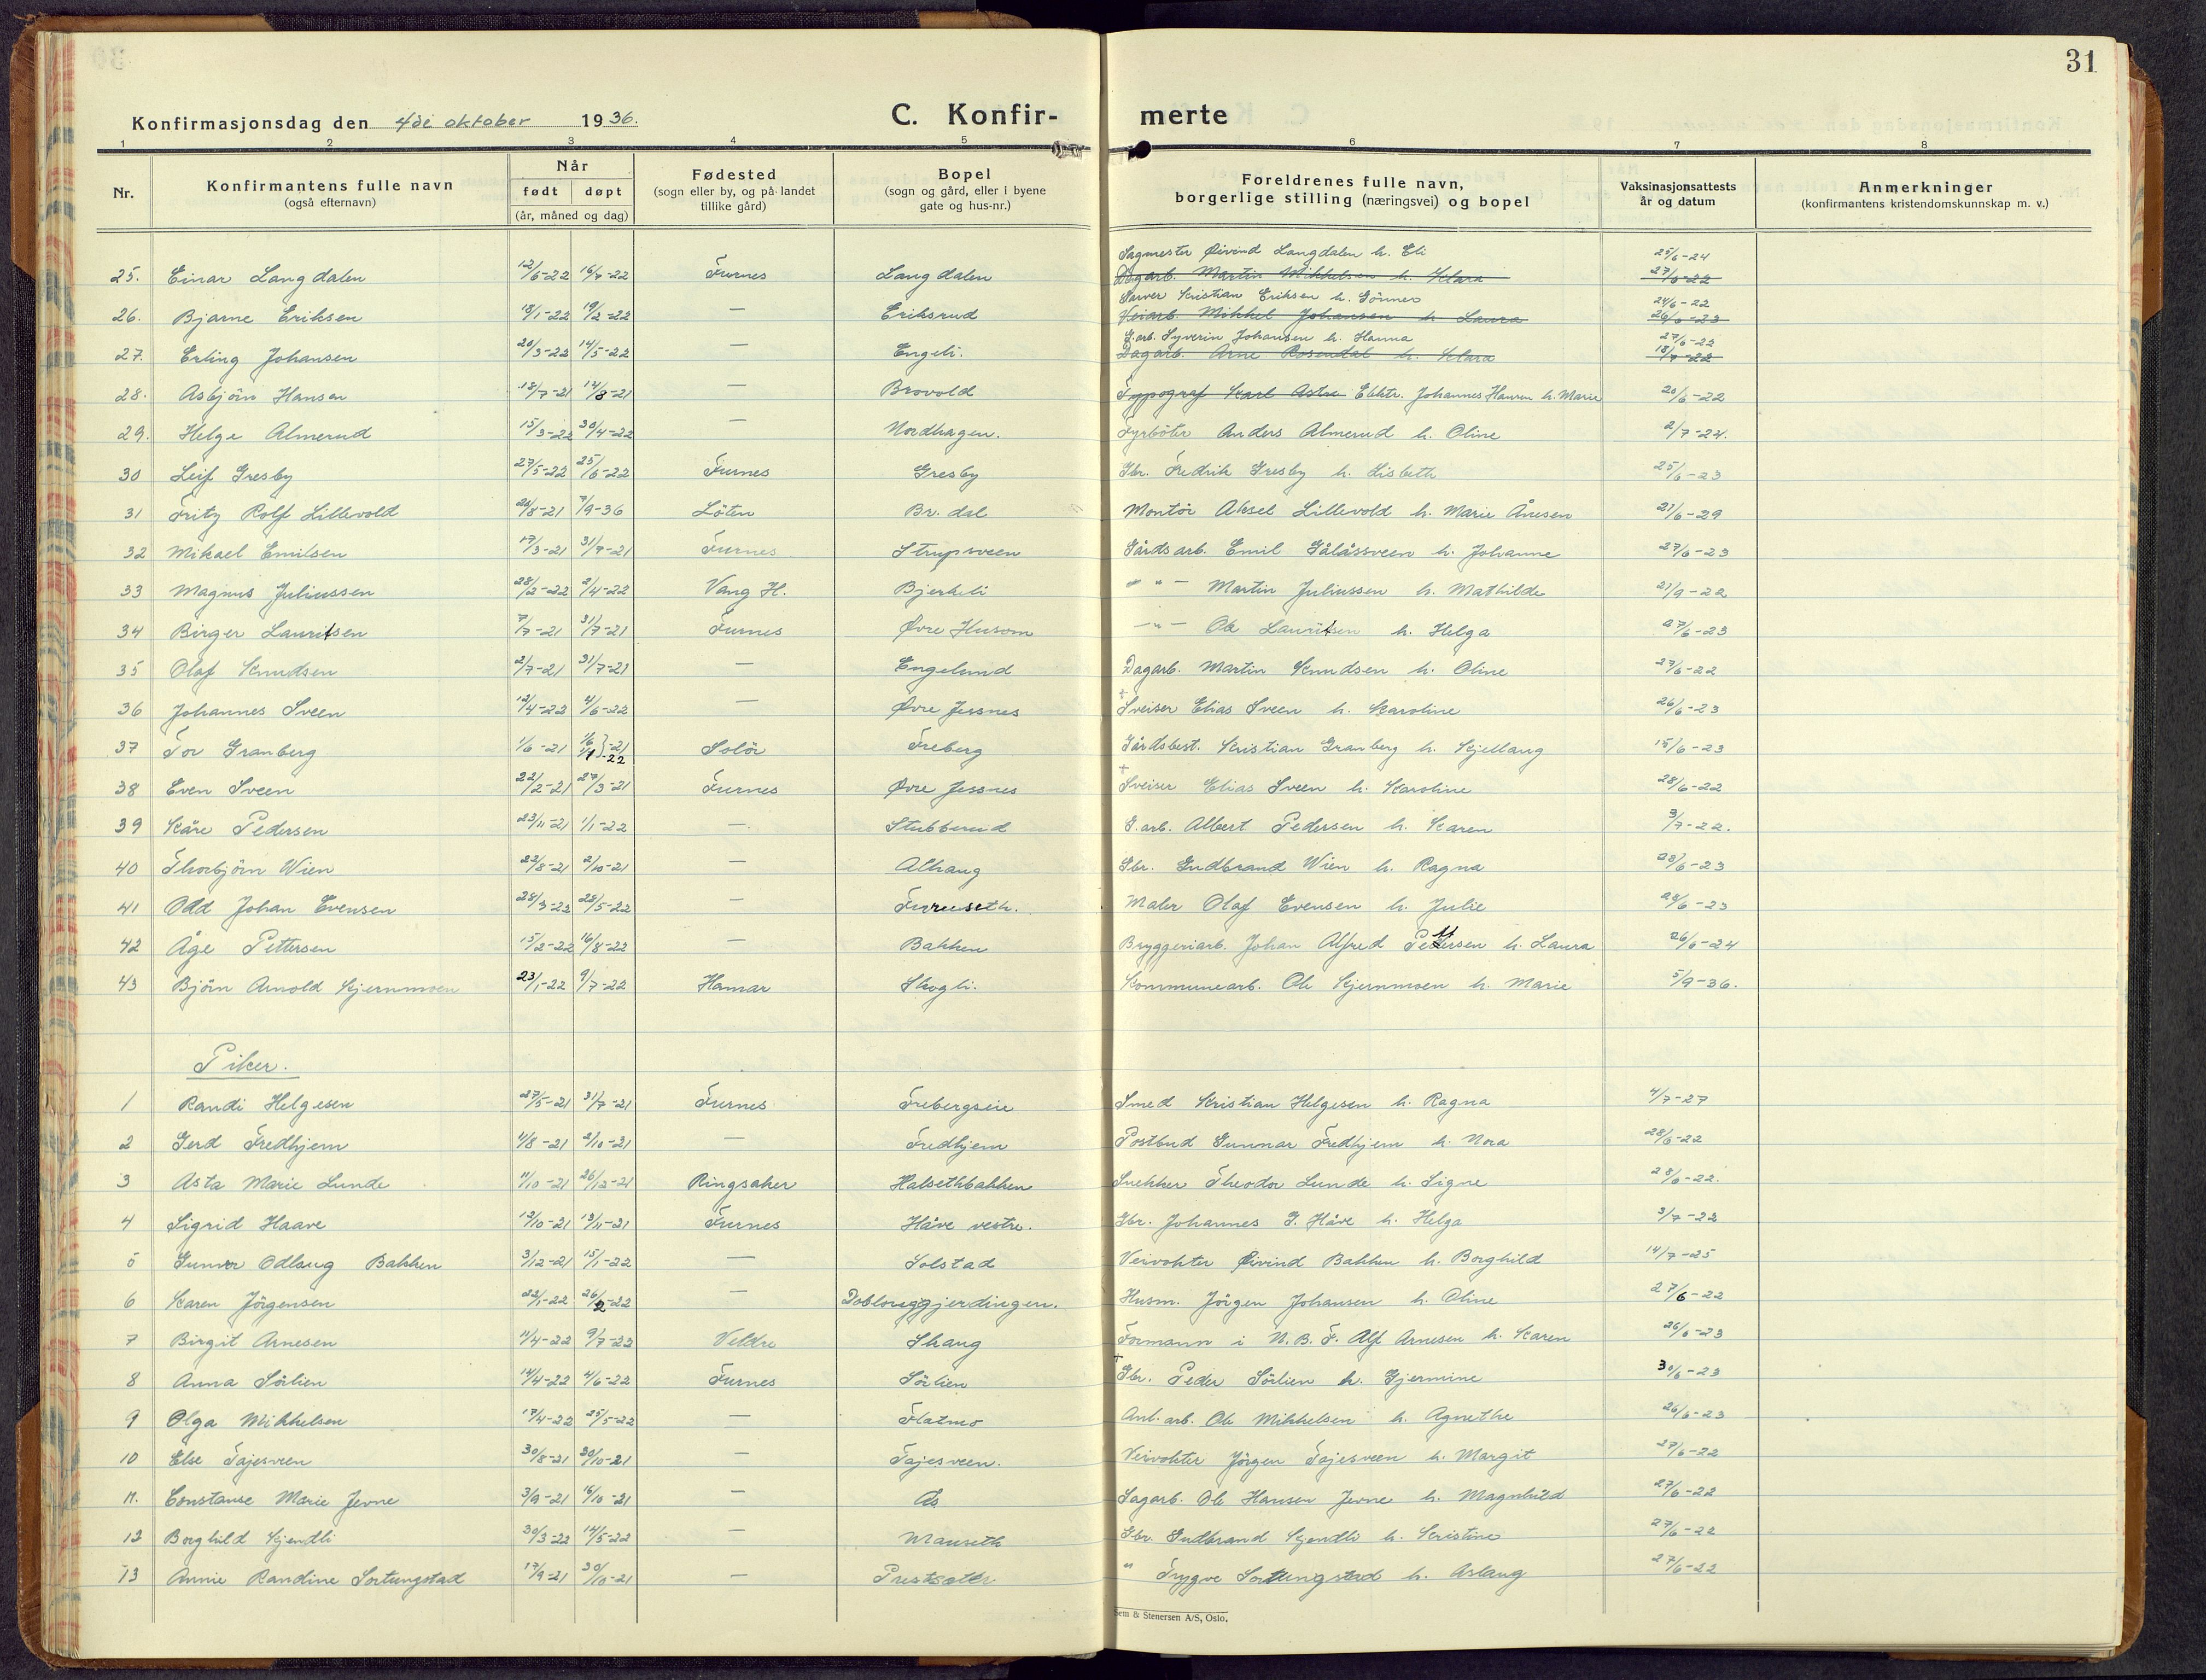 31
Konfirmasjonsdag den 4de oktober 1936.
C. Konfir-
merte
1 2 3 4 5 6 7 8
Nr.
Konfirmantens fulle navn
(også efternavn)
Når
født døpt
(år, måned og dag)
Fødested
(sogn eller by, og på landet
tillike gård)
Bopel
(sogn og gård, eller i byene
gate og hus-nr.)
Foreldrenes fulle navn,
borgerlige stilling (næringsvei) og bopel
Vaksinasjonsattests
år og datum
Anmerkninger
(konfirmantens kristendomskunnskap m. v.)
Sagmester Øivind Langdalen h. Eli 25/6-24
25. Einar Langdalen 12/6-22 16/7-22 Furnes Langdalen Dagarb. Martin Mikkelsen h. Klara 27/6-22
Kristian Eriksen h. Gönner 24/6-22
26. Bjarne Eriksen 18/1-22 19/2-22 — Eriksrud Veiarb. Mikkel Johansen h. Laura 26/6-23
G.arb. Syverin Johansen h. Hanna 27/6-22
27. Erling Johansen 20/3-22 14/5-22 — Engeli. Dagarb. Arne Rosendal h. Klara 18/7-22
28. Asbjörn Hansen 18/7-21 14/8-21 — Brovold Typograf Karl Astru Elektr. Johannes Hansen h. Marie 20/6-22
29. Helge Almerud 15/3-22 30/4-22 — Nordhagen. Fyrböter Anders Almerud h. Oline 2/7-24.
30 Leif Gresby 27/5-22 25/6-22 Furnes Gresby Gbr. Fredrik Gresby h. Lisbeth 25/6-23
31 Fritz Rolf Lillevold 20/8-21 7/9-36 Löten Br.dal Montör Aksel Lillevold h. Marie Ånesen 21/6-29
32 Mikael Emilsen 17/3-21 31/7-21 Furnes Strupsveen Gårdsarb. Emil Gålåssveen h. Johanne 27/6-23
33 Magnus Juliussen 28/2-22 2/4-22 Vang H. Bjerkeli — " — Martin Juliussen h. Mathilde 21/9-22
34 Birger Lauritsen 7/7-21 31/7-21 Furnes Øvre Husom — " — Ole Lauritsen h. Helga 27/6-23
35 Olaf Knudsen 2/7-21 31/7-21 — Engelund Dagarb. Martin Knudsen h. Oline 27/6-22
36 Johannes Sveen 12/4-22 4/6-22 — Øvre Jessnes + Sveiser Elias Sveen h. Karoline 26/6-23
37 Tor Granberg 1/6-21 1/6-21 1/1-22 Solör Freberg Gårdsbest. Kristian Granberg h. Kjellaug 15/6-23
38 Even Sveen 22/2-21 27/3-21 Furnes Øvre Jessnes + Sveiser Elias Sveen h. Karoline 28/6-22
39 Kåre Pedersen 23/11-21 1/1-22 — Stubberud G.arb. Albert Pedersen h. Karen 3/7-22.
40 Thorbjörn Wien 22/8-21 2/10-21 — Alhaug Gbr. Gudbrand Wien h. Ragna 28/6-23
41 Odd Johan Evensen 28/3-22 28/5-22 — Furuseth. Maler Olaf Evensen h. Julie 28/6-23
42 Åge Pettersen 15/2-22 16/8-22 — Bakken Bryggeriarb. Johan Alfred Pettersen h. Laura 26/6-24
43 Björn Arnold Kjernmoen 23/1-22 9/7-22 Hamar Skogli. Kommunearb. Ole Kjernmoen h. Marie 5/9-36.
Piker.
1 Randi Helgesen 27/5-21 31/7-21 Furnes Frebergseie Smed Kristian Helgesen h. Ragna 4/7-27
2 Gerd Fredhjem 11/8-21 2/10-21 — Fredhjem Postbud Gunnar Fredhjem h. Nora 28/6-22
3 Asta Marie Lunde 11/10-21 26/12-21 Ringsaker Halsethbakken Snekker Theodor Lunde h. Signe 28/6-22.
4 Sigrid Haave 12/10-21 13/11-21 Furnes Håve vestre. Gbr. Johannes G. Håve h. Helga 3/7-22
5 Gunvor Odlaug Bakken 3/12-21 15/1-22 — Solstad Veivokter Øivind Bakken h. Borghild 14/7-25
6 Karen Jörgensen 22/1-22 26/2-22 — Doblouggjerdingen. Husm. Jörgen Johansen h. Oline 27/6-22
7 Birgit Arnesen 11/4-22 9/7-22 Veldre Skaug Formann i N.B.F. Alf Arnesen h. Karen 26/6-23
8 Anna Sörlien 14/4-22 4/6-22 Furnes Sörlien + Gbr. Peder Sörlien h. Gjermine 30/6-23
9 Olga Mikkelsen 17/4-22 25/5-22 — Flatmo Anl.arb. Ole Mikkelsen h. Agnethe 26/6-23
10 Else Tajesveen 30/8-21 30/10-21 — Tajesveen. Veivokter Jörgen Tajesveen h. Margit 27/6-22
11. Constanse Marie Jevne 3/9-21 16/10-21 — Ås Sagarb. Ole Hansen Jevne h. Magnhild 27/6-22
12 Borghild Kjendli 30/3-22 14/5-22 — Mauseth Gbr. Gudbrand Kjendli h. Kristine 27/6-22
13 Annie Randine Sortungstad 17/9-21 30/10-21 — Prestseter " Trygve Sortungstad h. Aslaug 27/6-22
Sem & Stenersen A/S, Oslo.